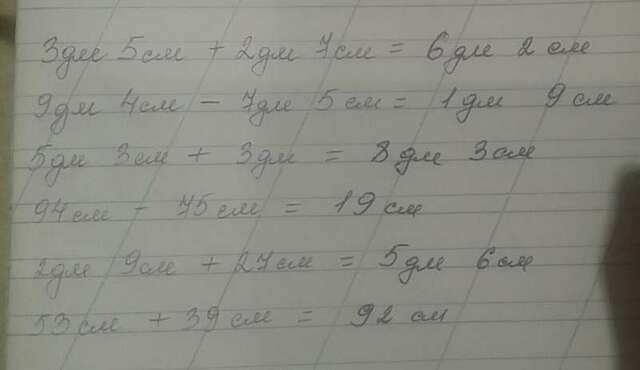 3дм 5см + 2дм 7см = 6дм 2см
9дм 4см - 7дм 5см = 1дм 9см
5дм 3см + 3дм = 8дм 3см
94см - 75см = 19см
2дм 9см + 27см = 5дм 6см
53см + 39см = 92см